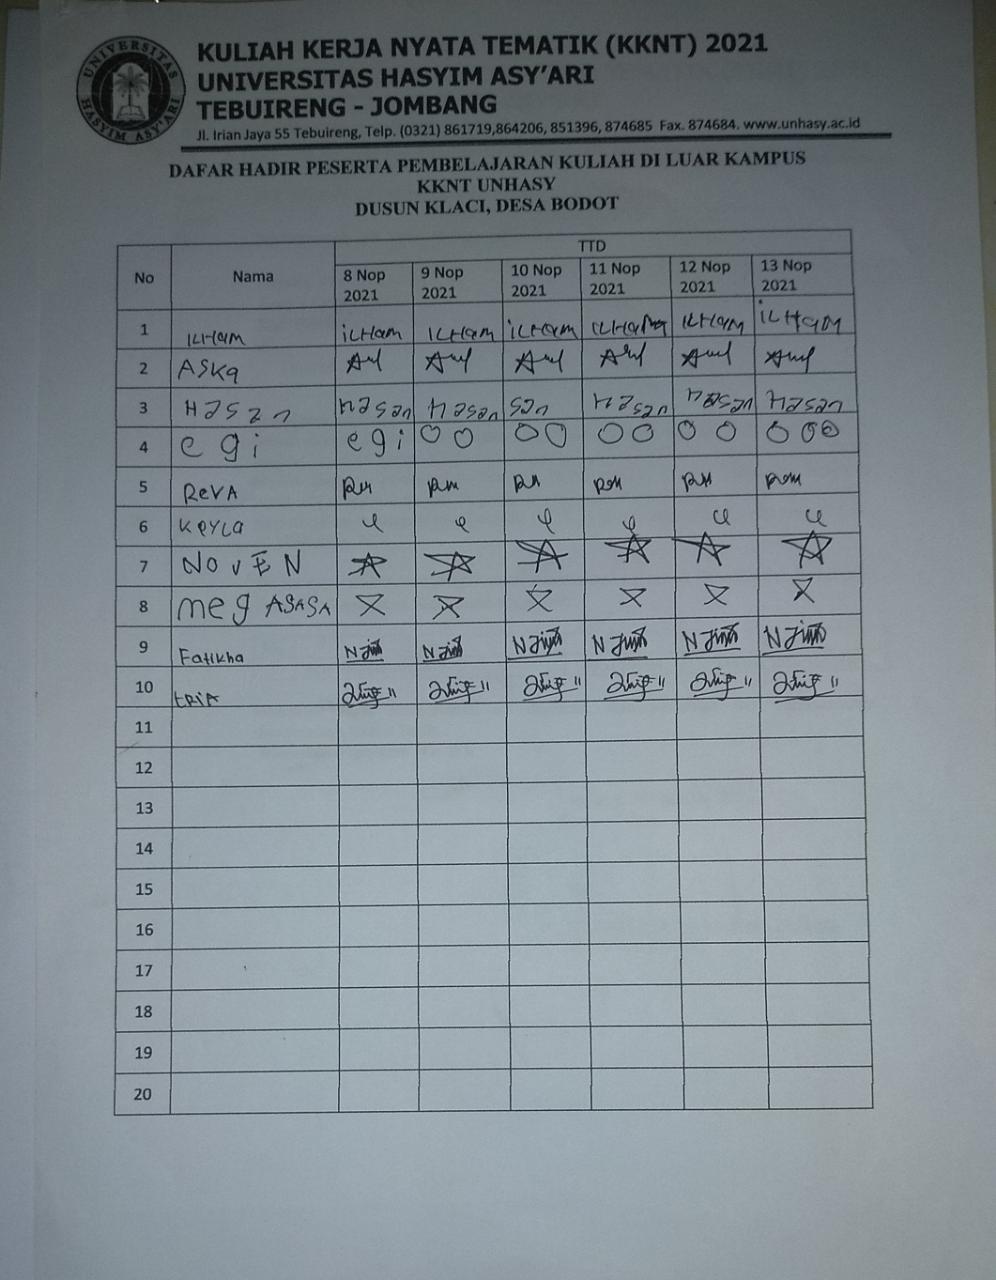 UNIVERSITAS HASYIM ASY'ARI
KULIAH KERJA NYATA TEMATIK (KKNT) 2021
UNIVERSITAS HASYIM ASY'ARI
TEBUIRENG - JOMBANG
Jl. Irian Jaya 55 Tebuireng, Telp. (0321) 861719,864206, 851396, 874685 Fax. 874684. www.unhasy.ac.id
DAFAR HADIR PESERTA PEMBELAJARAN KULIAH DI LUAR KAMPUS
KKNT UNHASY
DUSUN KLACI, DESA BODOT
No Nama TTD
8 Nop 2021 9 Nop 2021 10 Nop 2021 11 Nop 2021 12 Nop 2021 13 Nop 2021
1 ILHam iLHam ILHam iLHam ILHam ILHam iLHaM
2 ASKa
3 Hasan Hasan Hasan san Hasan Hasan Hasan
4 egi egi
5 ReVA
6 KeYLa
7 NOvEN
8 meg ASASA
9 Fatikha
10 tRiA
11
12
13
14
15
16
17
18
19
20